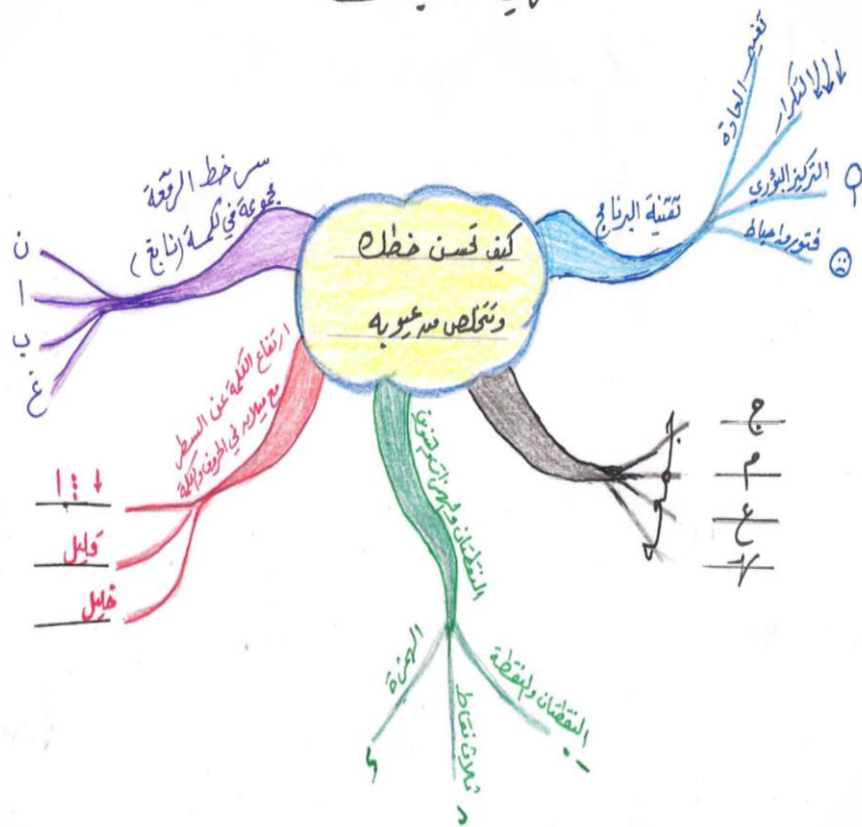 كيف تحسن خطك
وتتخلص من عيوبه
تقنية البرنامج
تغيير العادة
التكرار
التركيز البؤري
فتور واحباط
سر خط الرقعة
مجموعة في كلمة (نابغ)
ن
ا
ب
غ
ارتفاع الكلمة عن السطر
مع ميلان في الحروف والكلمة
قليل
خليل
النقطتان والنقطة
ثلاث نقاط
الهمزة
ج
م
ع
هـ